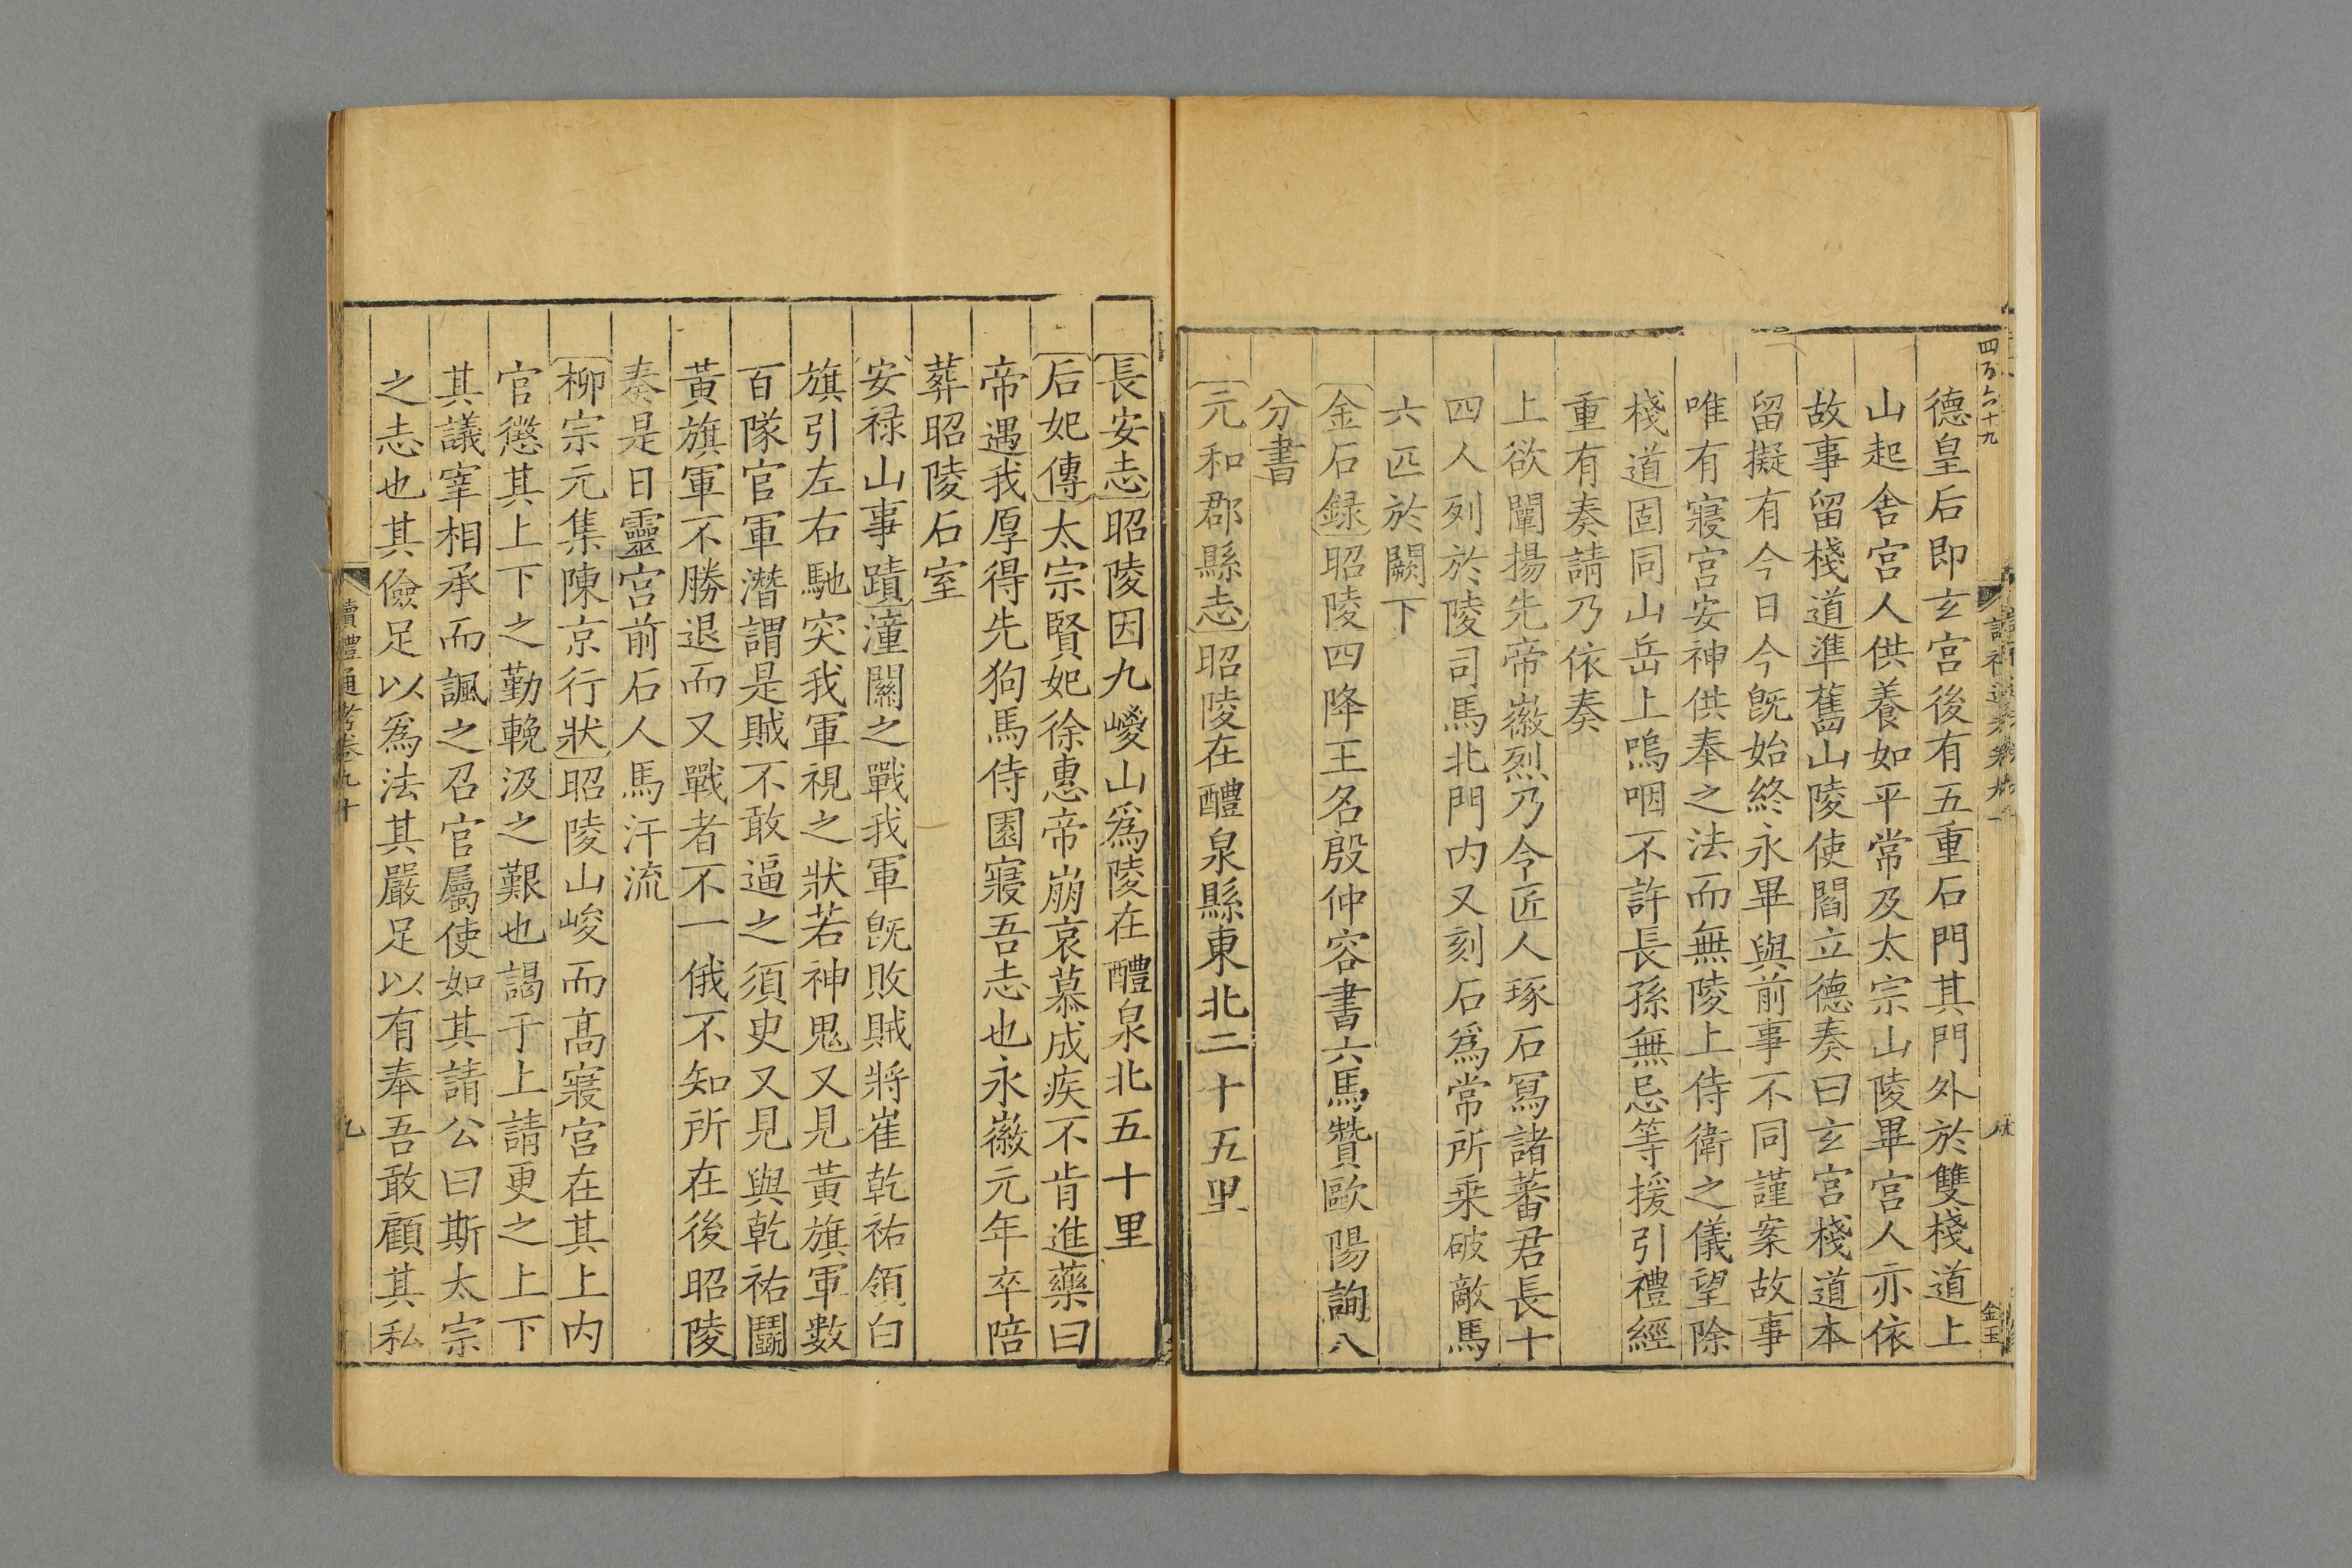 四百六十九
德皇后即玄宮後有五重石門其門外於雙棧道上
山起舍宮人供養如平常及太宗山陵畢宮人亦依
故事留棧道準舊山陵使閻立德奏曰玄宮棧道本
留擬有今日今旣始終永畢與前事不同謹案故事
唯有寢宮安神供奉之法而無陵上侍衛之儀望除
棧道固同山岳上嗚咽不許長孫無忌等援引禮經
重有奏請乃依奏
上欲闡揚先帝徽烈乃令匠人琢石寫諸蕃君長十
四人列於陵司馬北門内又刻石爲常所乗破敵馬
六匹於闕下
金石録昭陵四降王名殷仲容書六馬贊歐陽詢八
分書
元和郡縣志昭陵在醴泉縣東北二十五里
金玉
長安志昭陵因九嵕山爲陵在醴泉北五十里
后妃傳太宗賢妃徐惠帝崩哀慕成疾不肯進藥曰
帝遇我厚得先狗馬侍園寢吾志也永徽元年卒陪
葬昭陵石室
安禄山事蹟潼關之戰我軍旣敗賊將崔乾祐領白
旗引左右馳突我軍視之狀若神鬼又見黃旗軍數
百隊官軍潛謂是賊不敢逼之須史又見與乾祐鬬
黃旗軍不勝退而又戰者不一俄不知所在後昭陵
奏是日靈宮前石人馬汗流
柳宗元集陳京行狀昭陵山峻而高寢宮在其上内
官懲其上下之勤輓汲之艱也謁于上請更之上下
其議宰相承而諷之召官屬使如其請公曰斯太宗
之志也其儉足以爲法其嚴足以有奉吾敢顧其私
讀禮通考卷九十
九